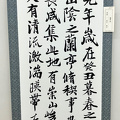 九年歲在癸丑暮春之
山陰之蘭亭脩稧事
長咸集此地有崇山
有清流激湍暎帶